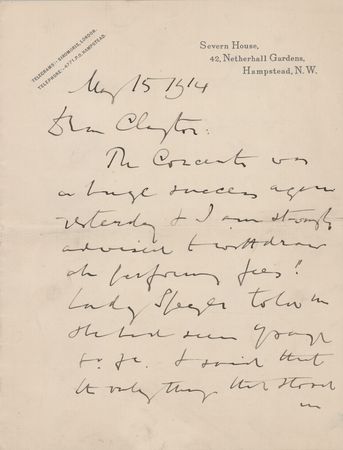 TELEGRAMS:- SIROMORIS, LONDON.
TELEPHONE:- 4771, P.O. HAMPSTEAD.
Severn House,
42, Netherhall Gardens,
Hampstead, N.W.
May 15 1914
Dear Clayton:
The Concerto was
a huge success again
yesterday & I am strongly
advised to withdraw
the performing fees!
Lady Speyer told me
she had seen
& I said that
the only thing that stood
in